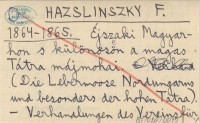 HAZSLINSZKY F.
1864-1865. Északi Magyar-
hon s különösön a magas
Tátra májmohai.
(Die Lebermoose Nordungarns
und besonders der hohen Tatra).
- Verhandlungen des Vereins für